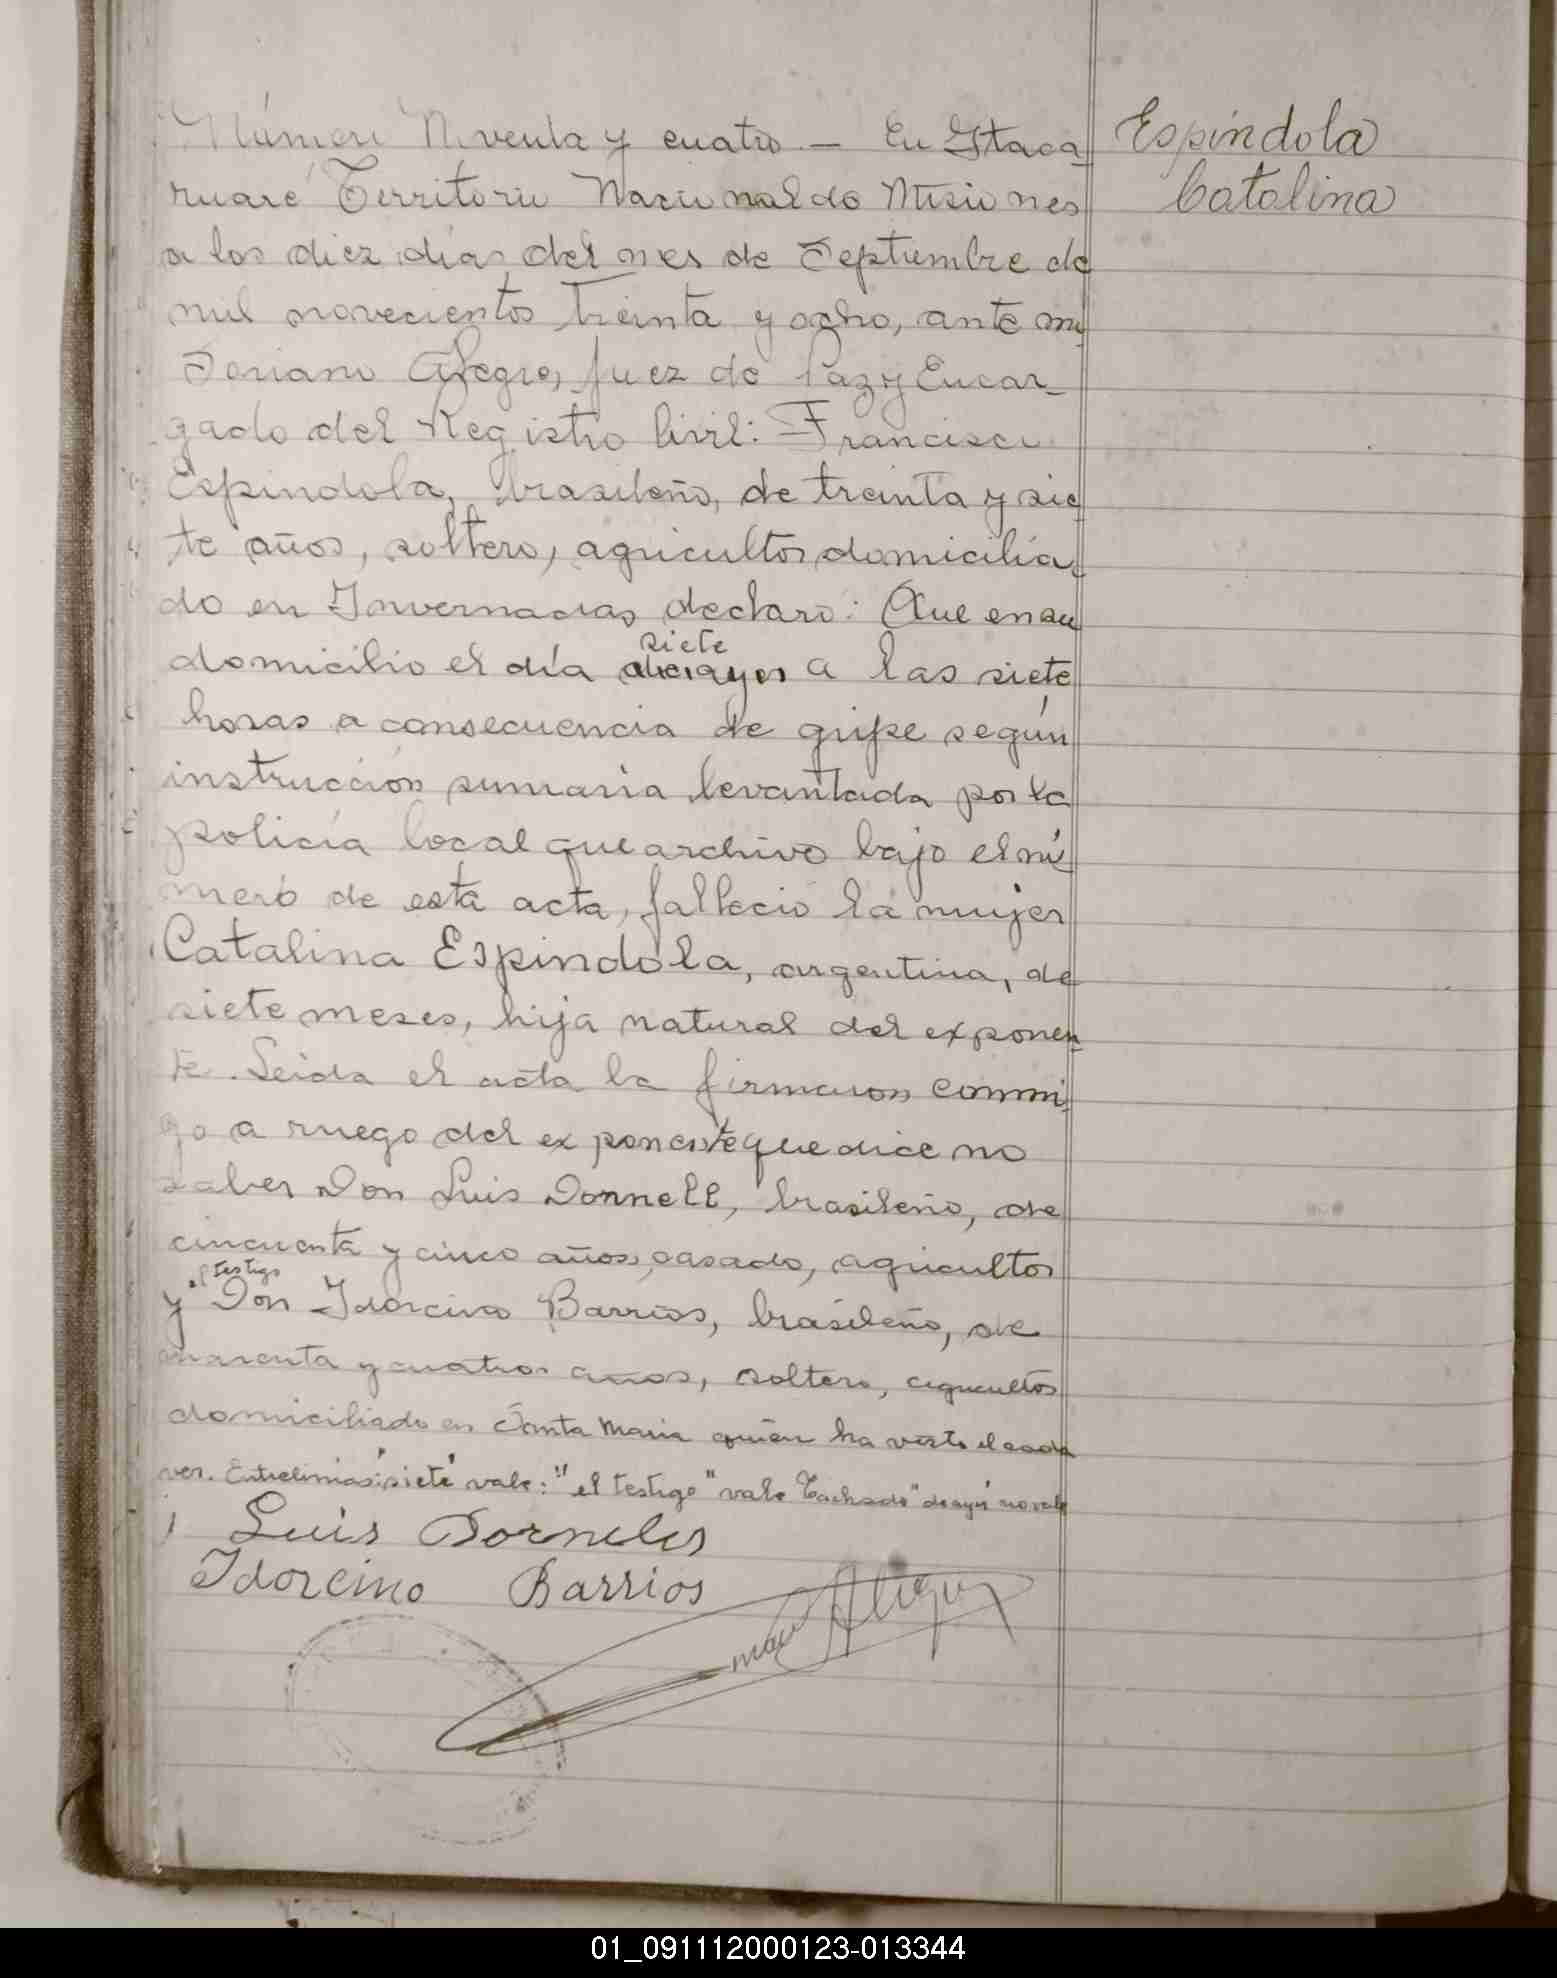 Número Noventa y cuatro — En Itaca-
ruaré Territorio Nacional de Misiones
a los diez días del mes de Septiembre de
mil novecientos treinta y ocho, ante mí
Alegre, Juez de Paz y Encar-
gado del Registro Civil: Francisco
Espindola, brasileño, de treinta y sie-
te años, soltero, agricultor domicilia-
do en Invernadas declaró: Que en su
siete
domicilio el día de ayer a las siete
horas a consecuencia de gripe según
instrucción sumaria levantada por la
policía local que archivo bajo el nú
mero de esta acta, falleció la mujer
Catalina Espindola, argentina, de
siete meses, hija natural del exponen-
te. Leida el acta la firmaron conmi-
go a ruego del exponente que dice no
saber Don Luis Dornell, brasileño, de
cincuenta y cinco años, casado, agricultor
el testigo
y Don Idorcino Barrios, brasileño, de
cuarenta y cuatro años, soltero, agricultor
domiciliado en Santa Maria quien ha visto el cada
ver. Entrelineas: "siete" vale: "el testigo" vale Tachado "de ayer" no vale
Luis Dorneles
Idorcino Barrios
Alegre
Espíndola
Catalina
01_091112000123-013344